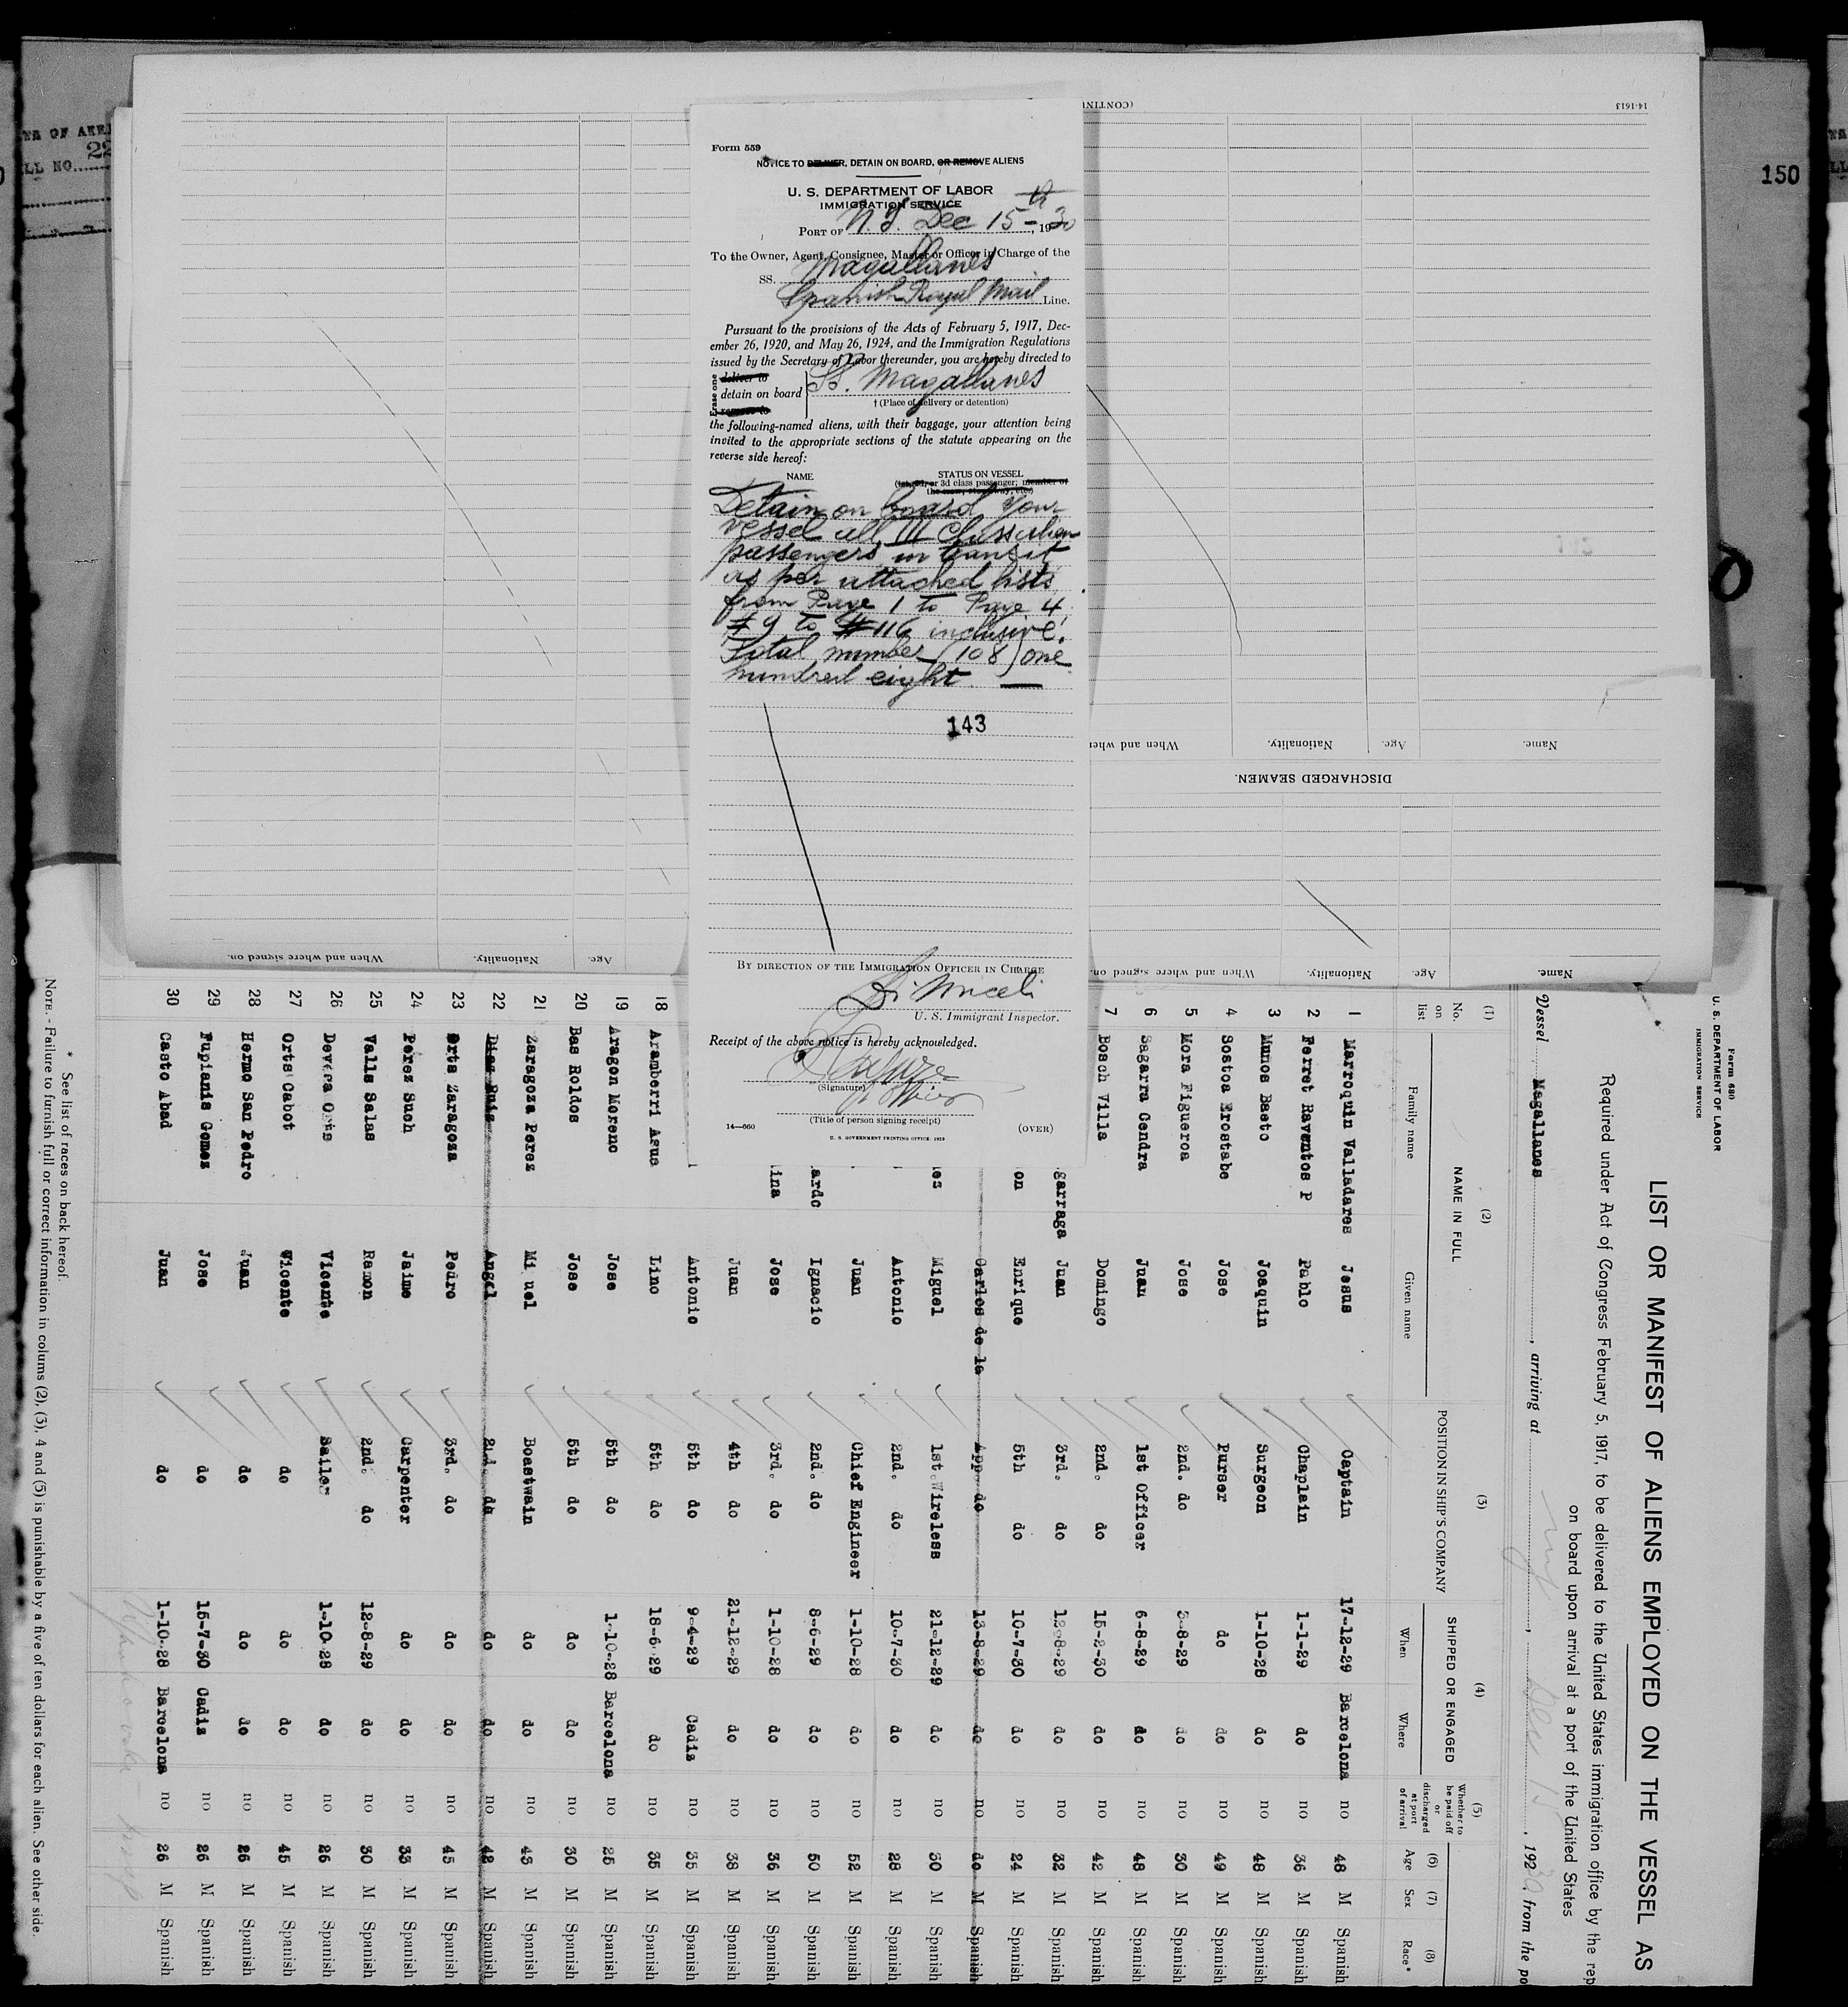 150
14-1613
Form 559
NOTICE TO DELIVER, DETAIN ON BOARD, OR REMOVE ALIENS
U. S. DEPARTMENT OF LABOR
IMMIGRATION SERVICE
PORT OF N.Y. Dec 15th, 1930
To the Owner, Agent, Consignee, Master or Officer in Charge of the
SS. Magallanes
Spanish Royal Mail Line.
Pursuant to the provisions of the Acts of February 5, 1917, Dec-
ember 26, 1920, and May 26, 1924, and the Immigration Regulations
issued by the Secretary of Labor thereunder, you are hereby directed to
Erase one
deliver to
detain on board
remove to
SS. Magallanes
† (Place of delivery or detention)
the following-named aliens, with their baggage, your attention being
invited to the appropriate sections of the statute appearing on the
reverse side hereof:
NAME
STATUS ON VESSEL
(1st, 2d, or 3d class passenger; member of
the crew, stowaway, etc.)
Detain on board your
vessel all III class alien
passengers in transit
as per attached lists
from Page 1 to Page 4
#9 to #116 inclusive.
Total number (108) one
hundred eight
143
BY DIRECTION OF THE IMMIGRATION OFFICER IN CHARGE
U. S. Immigrant Inspector.
Receipt of the above notice is hereby acknowledged.
(Signature)
(Title of person signing receipt)
14—660
U. S. GOVERNMENT PRINTING OFFICE: 1929
(OVER)
DISCHARGED SEAMEN.
Name.
Age.
Nationality.
When and wher
Name.
Age.
Nationality.
When and where signed on.
Age.
Nationality.
When and where signed on.
Form 680
U. S. DEPARTMENT OF LABOR
IMMIGRATION SERVICE
LIST OR MANIFEST OF ALIENS EMPLOYED ON THE VESSEL AS
Required under Act of Congress February 5, 1917, to be delivered to the United States immigration office by the rep
on board upon arrival at a port of the United States
Vessel Magallanes, arriving at N.Y. Dec 15, 1930 from the po
(1) No. on list
(2) NAME IN FULL
Family name Given name
(3) POSITION IN SHIP'S COMPANY
(4) SHIPPED OR ENGAGED
When Where
(5) Whether to be paid off or discharged at port of arrival
(6) Age
(7) Sex
(8) Race*
1 Marroquin Valladares Jesus Captain 17-12-29 Barcelona no 48 M Spanish
2 Ferret Raventos P Pablo Chaplain 1-1-29 do no 36 M Spanish
3 Munos Baeto Joaquin Surgeon 1-10-28 do no 48 M Spanish
4 Sostoa Erostabe Jose Purser do do no 49 M Spanish
5 Mora Figueroa Jose 2nd. do 3-8-29 do no 30 M Spanish
6 Sagarra Cendra Juan 1st Officer 6-8-29 do no 48 M Spanish
7 Bosch Villa Domingo 2nd. do 15-2-30 do no 42 M Spanish
garraga Juan 3rd. do 12-8-29 do no 32 M Spanish
on Enrique 5th do 10-7-30 do no 24 M Spanish
Carlos de la App. do 13-8-29 do no do M Spanish
es Miguel 1st. Wireless 21-12-29 do no 30 M Spanish
Antonio 2nd. do 10-7-30 do no 28 M Spanish
Juan Chief Engineer 1-10-28 do no 52 M Spanish
ardo Ignacio 2nd. do 8-6-29 do no 50 M Spanish
ina Jose 3rd. do 1-10-28 do no 36 M Spanish
Juan 4th do 21-12-29 do no 38 M Spanish
Antonio 5th do 9-4-29 Cadiz no 35 M Spanish
18 Aramberri Agus Lino 5th do 18-6-29 do no 35 M Spanish
19 Aragon Moreno Jose 5th do 1-10-28 Barcelona no 25 M Spanish
20 Bas Roldos Jose 5th do do do no 30 M Spanish
21 Zaragoza Perez Mi uel Boastwain do do no 43 M Spanish
22 Dias Ruis Angel 2nd. do do do no 42 M Spanish
23 Orts Zaragoza Pedro 3rd. do do do no 45 M Spanish
24 Perez Such Jaime Carpenter do do no 33 M Spanish
25 Valls Salas Ramon 2nd. do 12-8-29 do no 30 M Spanish
26 Devesa Orts Vicente Sailor 1-10-28 do no 26 M Spanish
27 Orts Cabot Vicente do do do no 45 M Spanish
28 Hermo San Pedro Juan do do do no 26 M Spanish
29 Pupianis Gomez Jose do 15-7-30 Cadiz no 26 M Spanish
30 Casto Abad Juan do 1-10-28 Barcelona no 26 M Spanish
* See list of races on back hereof.
NOTE. - Failure to furnish full or correct information in colums (2), (3), 4 and (5) is punishable by a five of ten dollars for each alien. See other side.